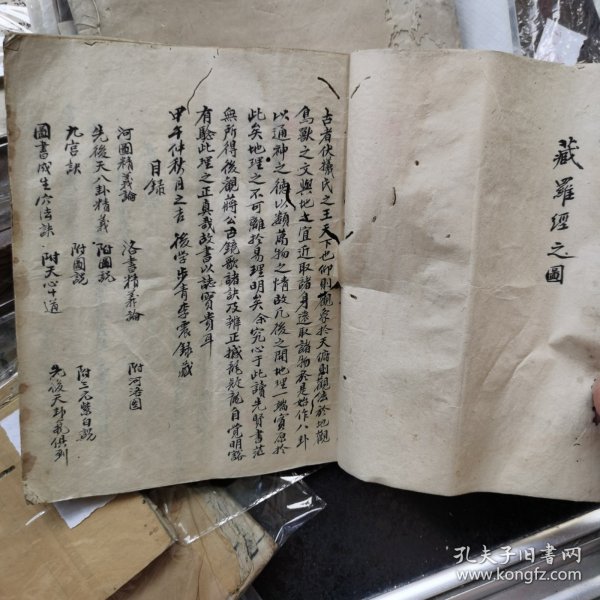 藏羅經之圖
古者伏犧氏之王天下也仰則觀象於天俯則觀法於地觀
鳥獸之文與地之宜近取諸身遠取諸物於是始作八卦
以通神之德以類萬物之情故凡後之開地理一端實原於
此矣地理之不可離於易理明矣余究心于此讀先賢書茫
無所得後觀蔣公古鏡歌諸訣及辨正撼龍疑龍自覺明豁
有驗此理之正真哉故書以誌寶貴耳
甲午仲秋月之吉 後学步青李震錄藏
目錄
河圖精義論 洛書精義論 附河洛圖
先後天八卦精義 附圖説
九宮訣 附圖説 附三元紫白説
圖書成生穴法訣 附天心十道 先後天卦氣俱列
孔夫子旧书网
www.kongfz.com